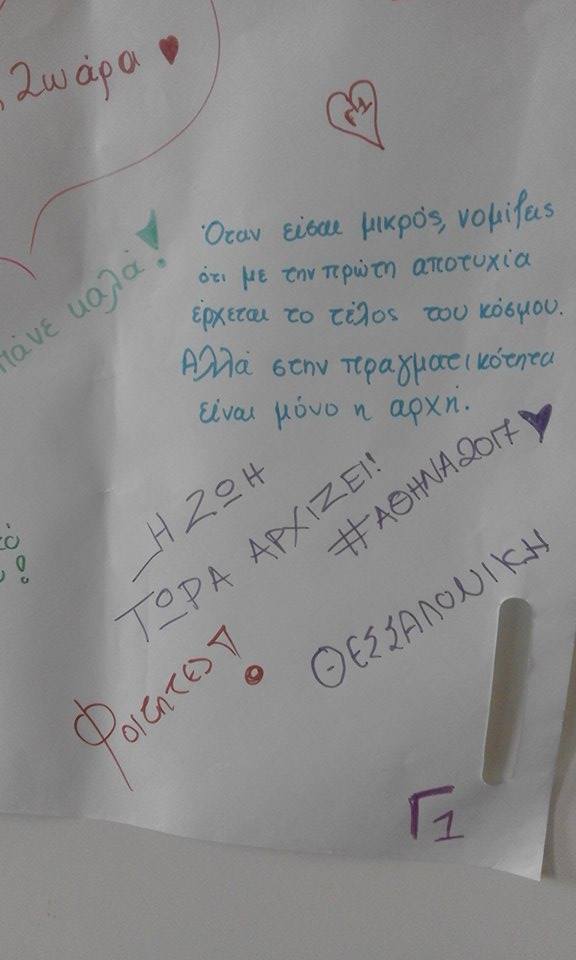 Ζωάρα ♥
Γ1
πάνε καλά!
Όταν είσαι μικρός, νομίζεις
ότι με την πρώτη αποτυχία
έρχεται το τέλος του κόσμου.
Αλλά στην πραγματικότητα
είναι μόνο η αρχή.
Η ΖΩΗ
ΤΩΡΑ ΑΡΧΙΖΕΙ!
#ΑΘΗΝΑ2017 ♥
ΘΕΣΣΑΛΟΝΙΚΗ
Φοιτητες!
Γ1